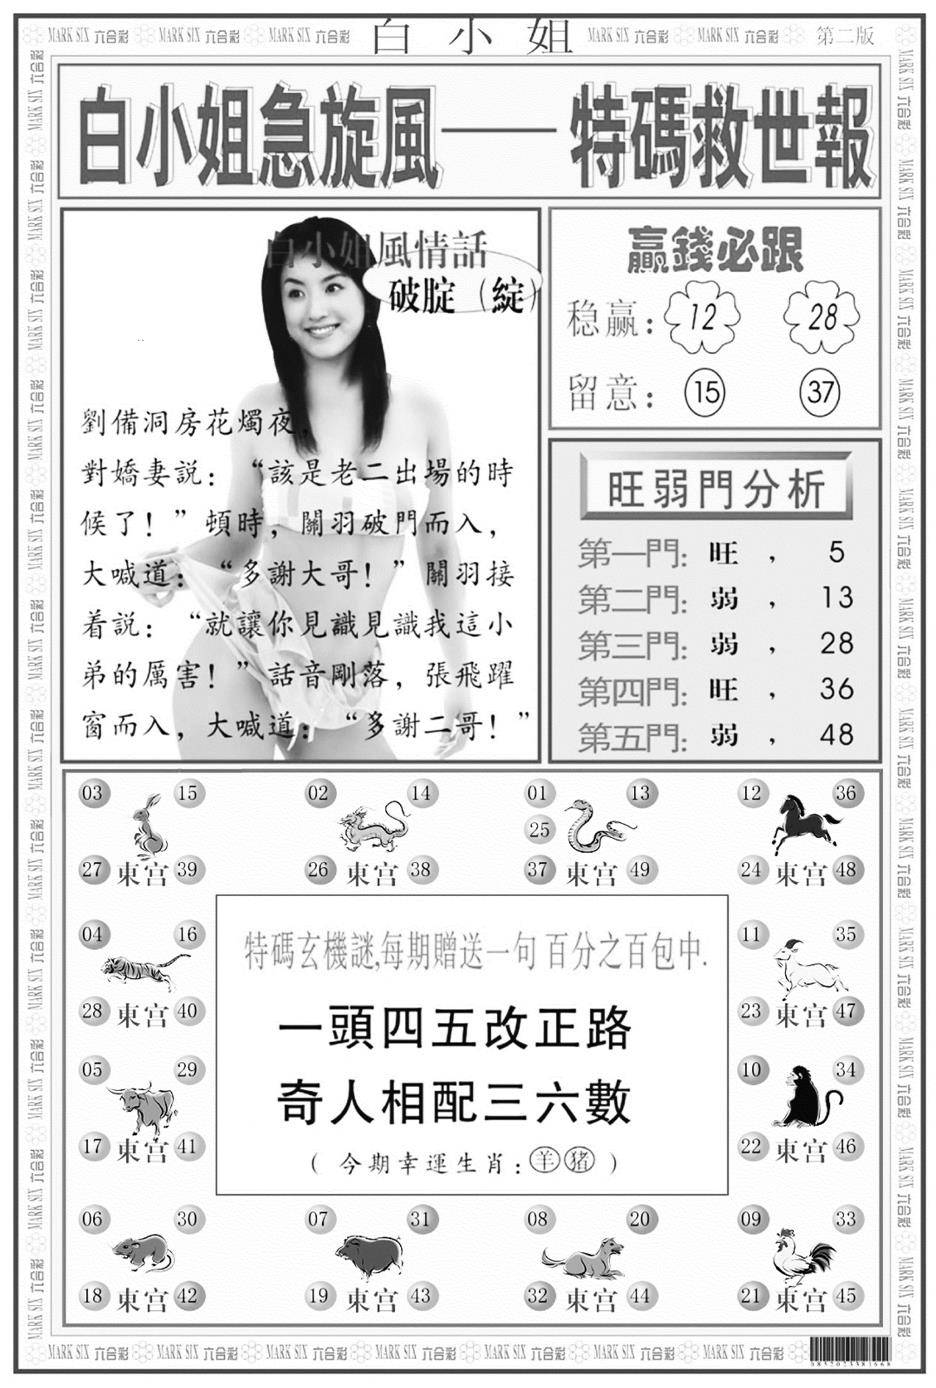 MARK SIX 六合彩 MARK SIX 六合彩 MARK SIX 六合彩 白小姐 MARK SIX 六合彩 MARK SIX 六合彩 第二版
白小姐急旋風——特碼救世報
白小姐風情話
破腚（綻）
劉備洞房花燭夜，
對嬌妻説：“該是老二出場的時
候了！”頓時，關羽破門而入，
大喊道：“多謝大哥！”關羽接
着説：“就讓你見識見識我這小
弟的厲害！”話音剛落，張飛躍
窗而入，大喊道：“多謝二哥！”
贏錢必跟
稳赢：12 28
留意：15 37
旺弱門分析
第一門：旺，5
第二門：弱，13
第三門：弱，28
第四門：旺，36
第五門：弱，48
03 15 02 14 01 13 12 36
25
27 東宫 39 26 東宫 38 37 東宫 49 24 東宫 48
04 16 11 35
28 東宫 40 23 東宫 47
05 29 10 34
17 東宫 41 22 東宫 46
特碼玄機謎,每期贈送一句 百分之百包中.
一頭四五改正路
奇人相配三六數
（今期幸運生肖：羊猪）
06 30 07 31 08 20 09 33
18 東宫 42 19 東宫 43 32 東宫 44 21 東宫 45
MARK SIX 六合彩 MARK SIX 六合彩 MARK SIX 六合彩 MARK SIX 六合彩 MARK SIX 六合彩 MARK SIX 六合彩 MARK SIX 六合彩